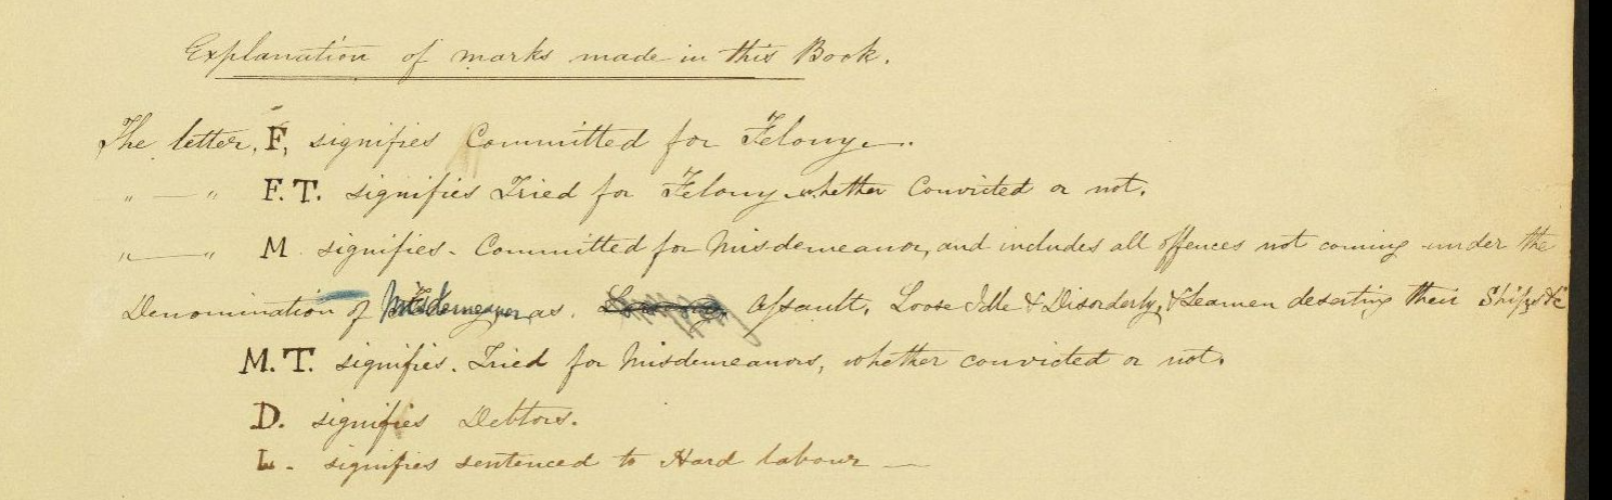 Explanation of marks made in this Book.
The letter, F, signifies Committed for Felony.
" — " F.T. signifies Tried for Felony whether Convicted or not.
" — " M signifies - Committed for Misdemeanor, and includes all offences not coming under the
Denomination of Misdemeanor, as. Assault, Loose Idle & Disorderly, & Seamen deserting their Ships &c
M.T. signifies. Tried for Misdemeanors, whether convicted or not.
D. signifies Debtors.
L - signifies sentenced to Hard labour —